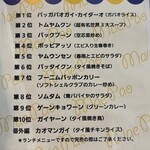 第1位 パッガパオガイ・カイダーオ(ガパオライス)
第2位 トムヤムクン(超有名世界三大スープ)
第3位 パックブーン(空芯菜炒め)
第4位 ポッピアソッ(エビ入り生春巻き)
第5位 ヤムウンセン(春雨とエビのサラダ)
第6位 パッタイクン(タイ風焼きそば)
第7位 プーニムパッポンカリー
(ソフトシェルクラブのカレー炒め)
第8位 ソムタム(青パパイヤのサラダ)
第9位 ゲーンキョワーン(グリーンカレー)
第10位 ガイヤーン(タイ風焼き鳥)
番外編 カオマンガイ(タイ風チキンライス)
※ランチメニューですので夜は別途になります。